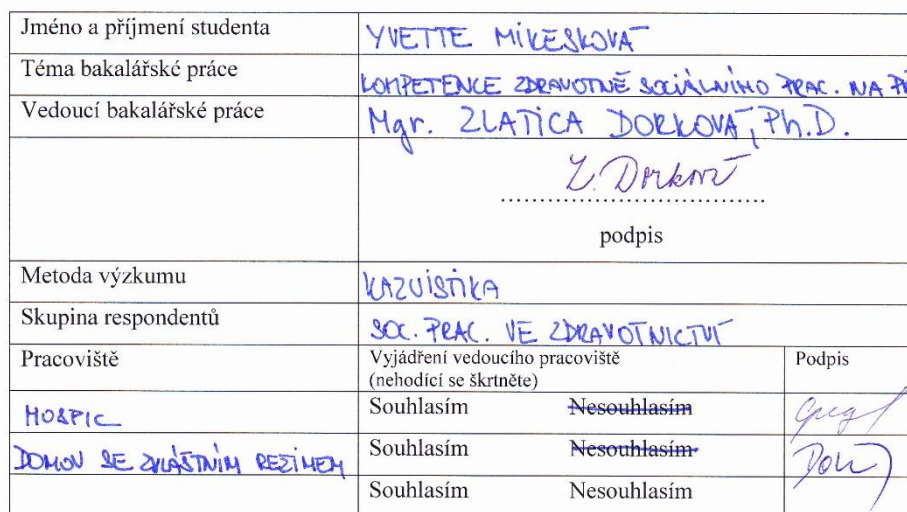 Jméno a příjmení studenta YVETTE MIKESKOVÁ
Téma bakalářské práce KOMPETENCE ZDRAVOTNĚ SOCIÁLNÍHO PRAC. NA
Vedoucí bakalářské práce Mgr. ZLATICA DORKOVÁ, Ph.D.
Z. Dorková
podpis
Metoda výzkumu KAZUISTIKA
Skupina respondentů SOC. PRAC. VE ZDRAVOTNICTVÍ
Pracoviště Vyjádření vedoucího pracoviště Podpis
(nehodící se škrtněte)
HOSPIC Souhlasím Nesouhlasím
DOMOV SE ZVLÁŠTNÍM REŽIMEM Souhlasím Nesouhlasím
Souhlasím Nesouhlasím